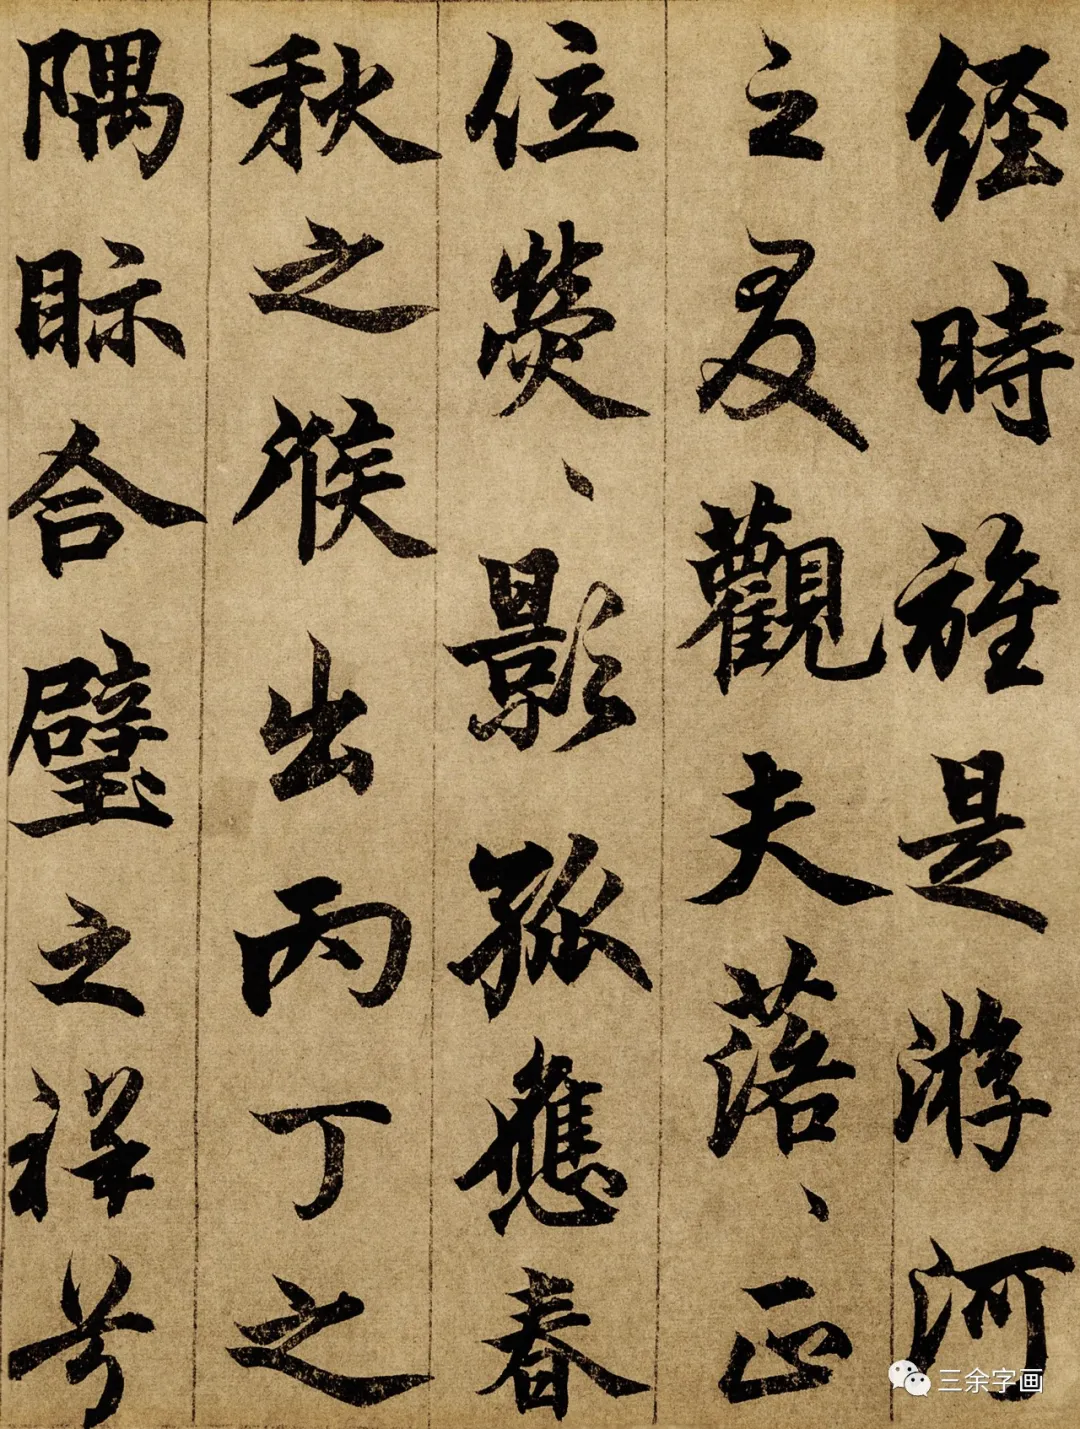 经時是游河
之友觀夫落、正
位熒、影孤應春
秋之候出丙丁之
隅眎合璧之祥兮
三余字画